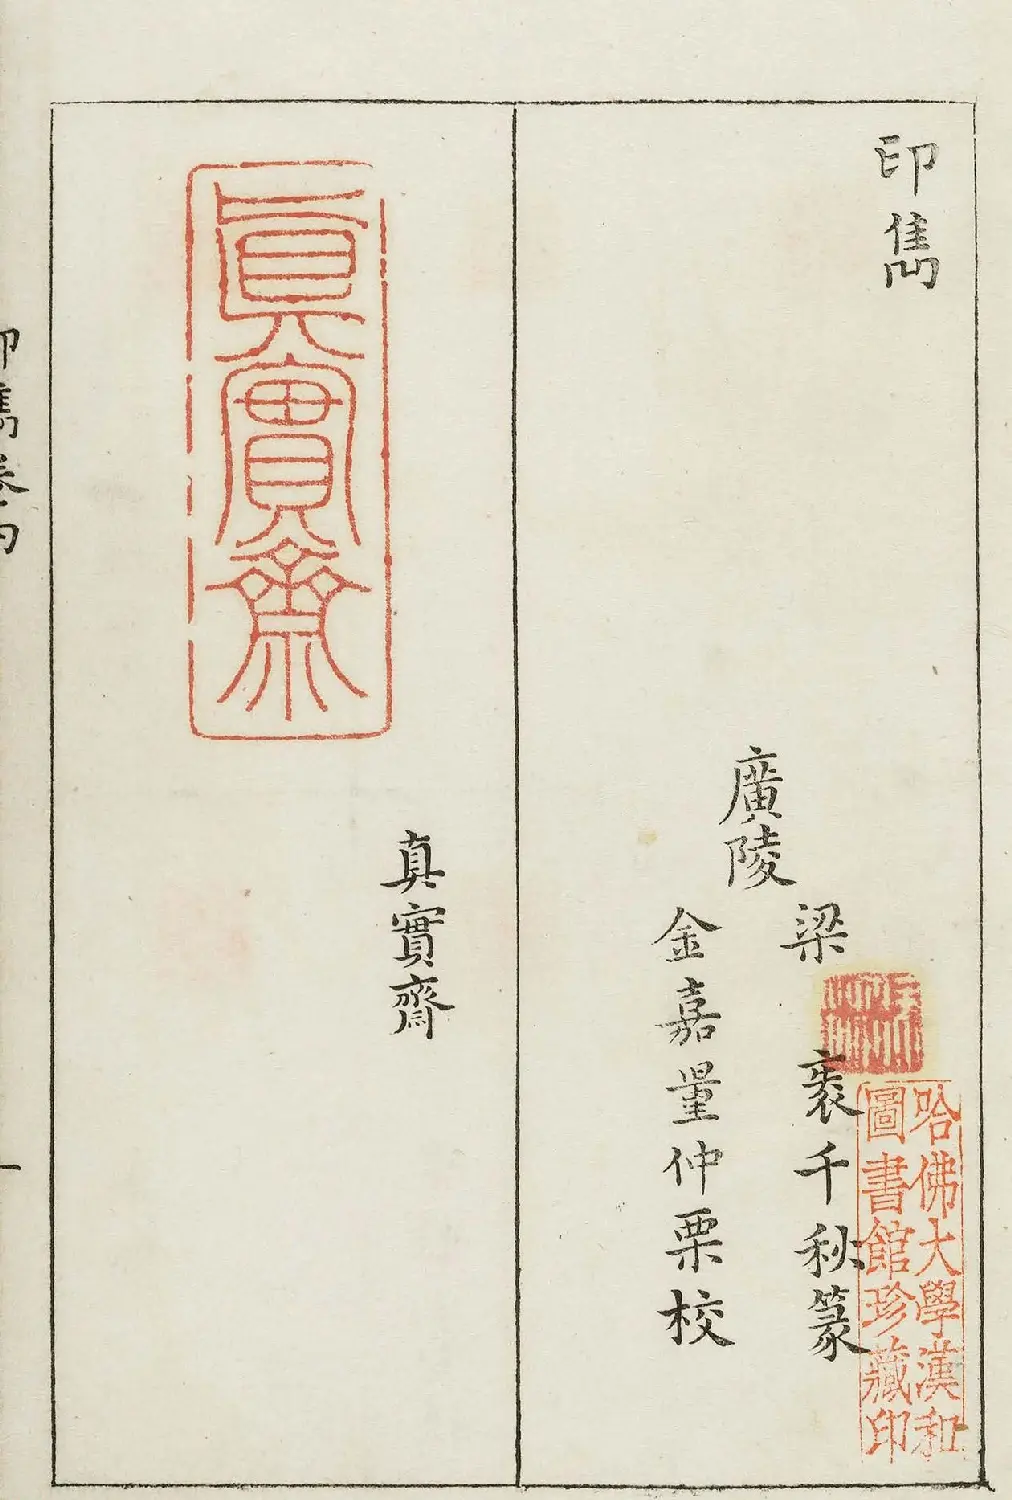 印雋
廣陵
梁 袠千秋篆
金嘉量仲栗校
哈佛大學漢和
圖書館珍藏印
眞實齋
真實齋
印雋卷
一